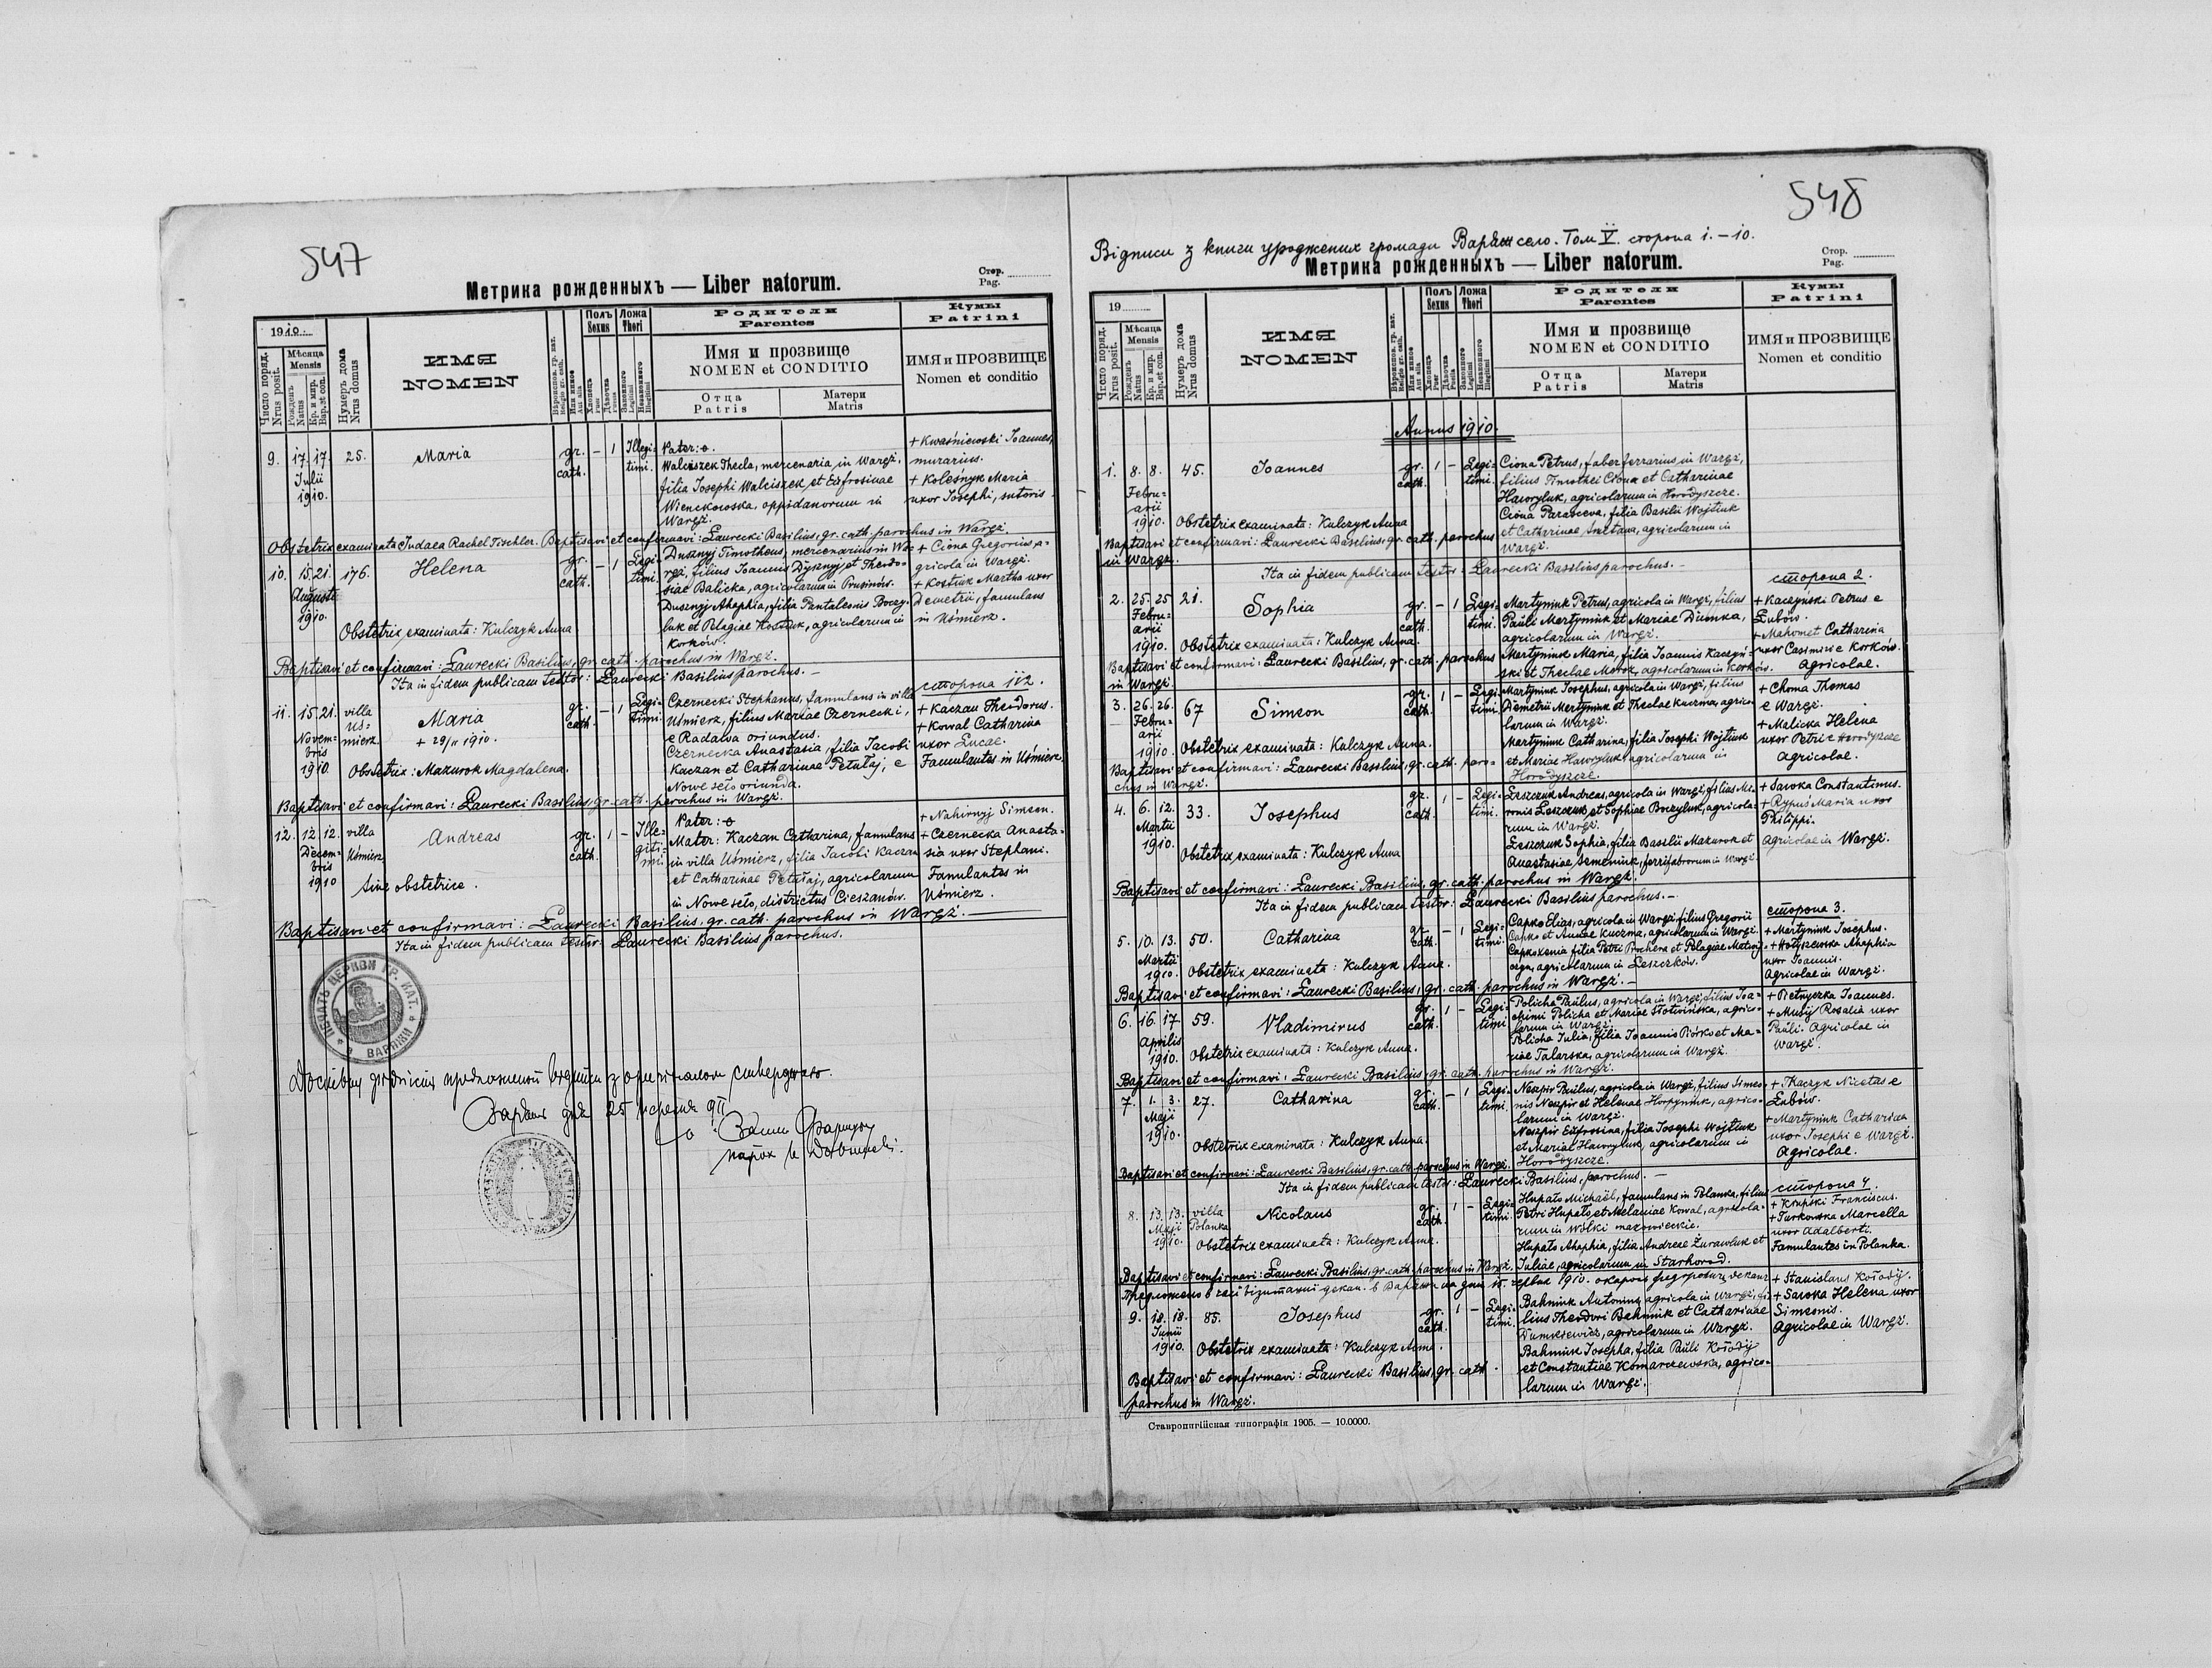 547
Метрика рожденныхъ — Liber natorum.
Стор.
Pag.
1910.
Число поряд.
Nrus posit.
Мѣсяца
Mensis
Рожденъ
Natus
Кр. и мир.
Bap. et con.
Нумеръ дома
Nrus domus
ИМЯ
NOMEN
Полъ
Sexus
Ложа
Thori
Хлопецъ
Puer
Дѣвочка
Puella
Законного
Legitimi
Незаконного
Illegitimi
Родители
Parentes
Имя и прозвище
NOMEN et CONDITIO
Отца
Patris
Матери
Matris
Кумы
Patrini
ИМЯ и ПРОЗВИЩЕ
Nomen et conditio
9. 17. 17. 25. Maria gr. cath. – 1 Illegi-
timi.
Julii
1910.
Pater: o.
Walciszek Thecla, mercenaria in Waręż,
filia Josephi Walciszek et Eufrosinae
Wienckowska, oppidanorum in
Waręż.
+ Kwaśniewski Joannes,
murarius.
+ Koleśnyk Maria
uxor Josephi, sutoris.
Obstetrix examinata Judaea Rachel Tischler. Baptisavi et confirmavi: Ławrecki Basilius, gr. cath. parochus in Waręż.
10. 15. 21. 176. Helena gr. cath. – 1 Legi-
timi.
Augusti
1910.
Dusznyj Timotheus, mercenarius in Wa-
ręż, filius Joannis Dusznyj et Theodo-
siae Balicka, agricolarum in Prusinów.
Dusznyj Ahaphia, filia Pantaleonis Boczy-
luk et Pelagiae Kostiuk, agricolarum in
Korków.
+ Ciona Gregorius, a-
gricola in Waręż.
+ Kostiuk Martha uxor
Demetrii, famulans
in Uśmierz.
Obstetrix examinata: Kulczyk Anna
Baptisavi et confirmavi: Ławrecki Basilius, gr. cath. parochus in Waręż.
Ita in fidem publicam testor: Ławrecki Basilius parochus. –
сторона 112.
11. 15. 21. villa
Uś-
mierz.
Maria
+ 29/11 1910.
gr. cath. – 1 Legi-
timi.
Novem-
bris
1910.
Czernecki Stephanus, famulans in villa
Uśmierz, filius Mariae Czernecki,
e Radawa oriundus.
Czernecka Anastasia, filia Jacobi
Kaczan et Catharinae Petułaj, e
Nowe seło oriunda.
+ Kaczan Theodorus.
+ Kowal Catharina
uxor Lucae.
Famulantes in Uśmierz.
Obstetrix: Mazurok Magdalena.
Baptisavi et confirmavi: Ławrecki Basilius, gr. cath. parochus in Waręż.
12. 12. 12. villa
Uśmierz
Andreas gr. cath. 1 – Ille-
giti-
mi.
Decem-
bris
1910
Pater: o
Mater: Kaczan Catharina, famulans
in villa Uśmierz, filia Jacobi Kaczan
et Catharinae Petułaj, agricolarum
in Nowe seło, districtus Cieszanów.
+ Nahirnyj Simeon.
+ Czernecka Anasta-
sia uxor Stephani.
Famulantes in
Uśmierz.
sine obstetrice.
Baptisavi et confirmavi: Ławrecki Basilius, gr. cath. parochus in Waręż.
Ita in fidem publicam testor: Ławrecki Basilius parochus.
ПЕЧАТЬ ЦЕРКВИ ГР. КАТ. В ВАРЯЖИ
548
Відписи з книги уроджених громади Варяж село. Том V. сторона 1. – 10.
Метрика рожденныхъ — Liber natorum.
Стор.
Pag.
19
Число поряд.
Nrus posit.
Мѣсяца
Mensis
Рожденъ
Natus
Кр. и мир.
Bap. et con.
Нумеръ дома
Nrus domus
ИМЯ
NOMEN
Полъ
Sexus
Ложа
Thori
Хлопецъ
Puer
Дѣвочка
Puella
Законного
Legitimi
Незаконного
Illegitimi
Родители
Parentes
Имя и прозвище
NOMEN et CONDITIO
Отца
Patris
Матери
Matris
Кумы
Patrini
ИМЯ и ПРОЗВИЩЕ
Nomen et conditio
Annus 1910.
1. 8. 8. 45. Joannes gr. cath. 1 – Legi-
timi.
Febru-
arii
1910.
Ciona Petrus, faber ferrarius in Waręż,
filius Timothei Ciona et Catharinae
Hawryluk, agricolarum in Horodyszcze.
Ciona Parasceva, filia Basilii Wojtiuk
et Catharinae Smetana, agricolarum in
Waręż.
Obstetrix examinata: Kulczyk Anna
Baptisavi et confirmavi: Ławrecki Basilius, gr. cath. parochus
in Waręż.
Ita in fidem publicam testor: Ławrecki Basilius parochus. –
сторона 2.
2. 25. 25 21. Sophia gr. cath. – 1 Legi-
timi.
Febru-
arii
1910.
Martyniuk Petrus, agricola in Waręż, filius
Pauli Martyniuk et Mariae Dumka,
agricolarum in Waręż.
Martyniuk Maria, filia Joannis Kaczyń-
ski et Theclae Moroz, agricolarum in Korków.
+ Kaczyński Petrus e
Łubów.
+ Mahomet Catharina
uxor Casimiri e Korków.
Agricolae.
Obstetrix examinata: Kulczyk Anna.
Baptisavi et confirmavi: Ławrecki Basilius, gr. cath. parochus
in Waręż.
3. 26. 26. 67 Simeon gr. cath. 1 – Legi-
timi.
Febru-
arii
1910.
Martyniuk Josephus, agricola in Waręż, filius
Demetrii Martyniuk et Theclae Kuczma, agrico-
larum in Waręż.
Martyniuk Catharina, filia Josephi Wojtiuk
et Mariae Hawryluk, agricolarum in
Horodyszcze.
+ Choma Thomas
e Waręż.
+ Malicka Helena
uxor Petri e Horodyszcze
Agricolae.
Obstetrix examinata: Kulczyk Anna.
Baptisavi et confirmavi: Ławrecki Basilius, gr. cath. paro-
chus in Waręż.
4. 6. 12. 33. Josephus gr. cath. 1 – Legi-
timi.
Martii
1910.
Leszczuk Andreas, agricola in Waręż, filius Mi-
ronis Leszczuk et Sophiae Boczyluk, agricola-
rum in Waręż.
Leszczuk Sophia, filia Basilii Mazurok et
Anastasiae Semeniuk, ferrifabrorum in Waręż
+ Sawka Constantinus.
+ Rypuś Maria uxor
Philippi.
Agricolae in Waręż.
Obstetrix examinata: Kulczyk Anna
Baptisavi et confirmavi: Ławrecki Basilius, gr. cath. parochus in Waręż.
Ita in fidem publicam testor: Ławrecki Basilius parochus. –
сторона 3.
5. 10. 13. 50. Catharina gr. cath. – 1 Legi-
timi.
Martii
1910.
Capko Elias, agricola in Waręż, filius Gregorii
Capko et Annae Kuczma, agricolarum in Waręż.
Capko Xenia filia Petri Prochera et Pelagiae
agricolarum in Leszczków.
+ Martyniuk Josephus.
+ Hołyszewska Ahaphia
uxor Joannis.
Agricolae in Waręż.
Obstetrix examinata: Kulczyk Anna.
Baptisavi et confirmavi: Ławrecki Basilius, gr. cath. parochus in Waręż. –
6. 16. 17 59. Vladimirus gr. cath. 1 – Legi-
timi
Aprilis
1910.
Policha Paulus, agricola in Waręż, filius Joa-
chimi Policha et Mariae Słotwińska, agrico-
larum in Waręż.
Policha Julia, filia Joannis Piórko et Ma-
riae Talarska, agricolarum in Waręż.
+ Pietryczka Joannes.
+ Musij Rosalia uxor
Pauli. Agricolae in
Waręż.
Obstetrix examinata: Kulczyk Anna.
Baptisavi et confirmavi: Ławrecki Basilius, gr. cath. parochus in Waręż.
7. 1. 3. 27. Catharina gr. cath. – 1 Legi-
timi.
Maji
1910.
Neszpir Paulus, agricola in Waręż, filius Simeo-
nis Neszpir et Helenae Horpyniuk, agrico-
larum in Waręż.
Neszpir Eufrosina, filia Josephi Wojtiuk
et Mariae Hawryluk, agricolarum in
Horodyszcze.
+ Tkaczyk Nicetas e
Łubów.
+ Martyniuk Catharina
uxor Josephi e Waręż.
Agricolae.
Obstetrix examinata: Kulczyk Anna.
Baptisavi et confirmavi: Ławrecki Basilius, gr. cath. parochus in Waręż.
Ita in fidem publicam testor: Ławrecki Basilius, parochus. –
сторона 4.
8. 13. 13. villa
Polanka
Nicolaus gr. cath. 1 – Legi-
timi.
Maji
1910.
Hupało Michaël, famulans in Polanka, filius
Petri Hupało et Melaniae Kowal, agricola-
rum in Wólki mazowieckie.
Hupało Ahaphia, filia Andreae Żurawluk et
Juliae, agricolarum in Starhorod.
+ Krupski Franciscus.
+ Turkowska Marcella
uxor Adalberti.
Famulantes in Polanka.
Obstetrix examinata: Kulczyk Anna.
Baptisavi et confirmavi: Ławrecki Basilius, gr. cath. parochus in Waręż.
9. 18. 18. 85. Josephus gr. cath. 1 – Legi-
timi.
Junii
1910.
Bahniuk Antonius, agricola in Waręż, fi-
lius Theodori Bahniuk et Catharinae
Tumkiewicz, agricolarum in Waręż.
Bahniuk Josepha, filia Pauli Kołodij
et Constantiae Komarczewska, agrico-
larum in Waręż.
+ Stanislaus Kołodij.
+ Sawka Helena uxor
Simeonis.
Agricolae in Waręż.
Obstetrix examinata: Kulczyk Anna.
Baptisavi et confirmavi: Ławrecki Basilius, gr. cath.
parochus in Waręż.
Ставропигійская типографія 1905. — 10.0000.